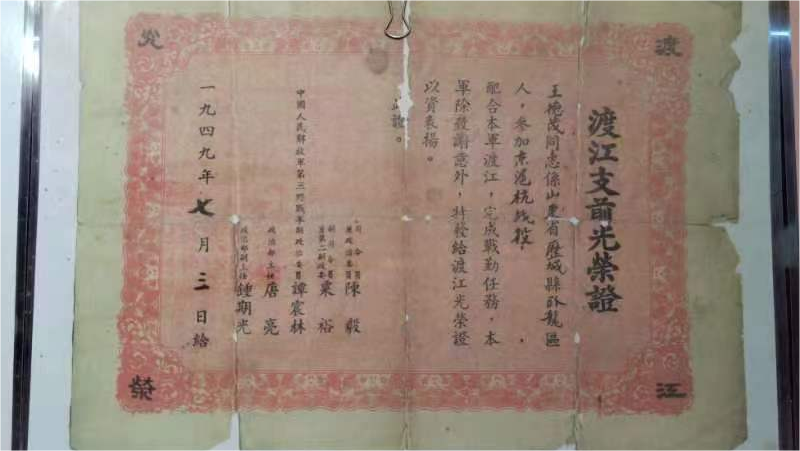 渡江
光榮
渡江支前光榮證
王德茂同志係山東省歷城縣卧龍區
人，參加京滬杭战役，
配合本軍渡江，完成戰勤任務，本
軍除致謝意外，特發給渡江光榮證
以資表揚。
此證。
司令員兼政治委員陳毅
副司令員兼第二副政委粟裕
中國人民解放軍第三野戰軍副政治委員譚震林
政治部主任唐亮
政治部副主任鍾期光
一九四九年七月三日給